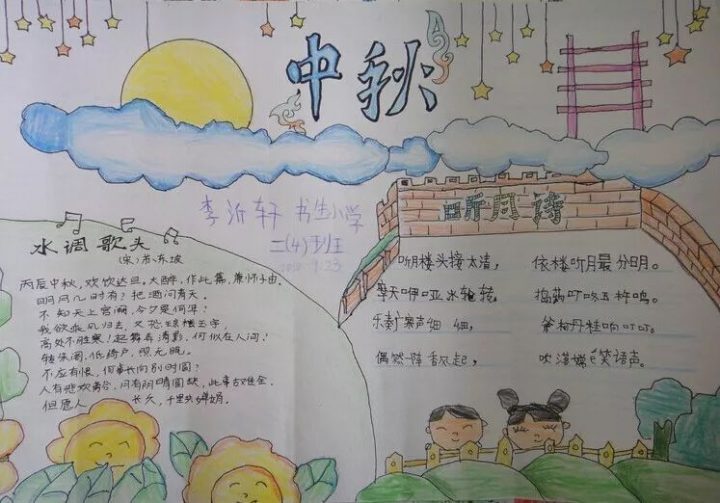 中秋
李沂轩 书生小学
二(4)班
2018.9.23
水调歌头
(宋)苏东坡
丙辰中秋,欢饮达旦。大醉,作此篇,兼怀子由。
明月几时有?把酒问青天。
不知天上宫阙,今夕是何年?
我欲乘风归去,又恐琼楼玉宇,
高处不胜寒!起舞弄清影,何似在人间!
转朱阁,低绮户,照无眠。
不应有恨,何事长向别时圆?
人有悲欢离合,月有阴晴圆缺,此事古难全。
但愿人 长久,千里共婵娟。
听月诗
听楼头接太清, 依楼听月最分明。
摩天咿哑冰轮转, 捣药叮咚玉杵鸣。
乐奏广寒声细细, 斧柯丹桂响叮叮。
偶然一阵香风起, 吹落嫦é笑语声。